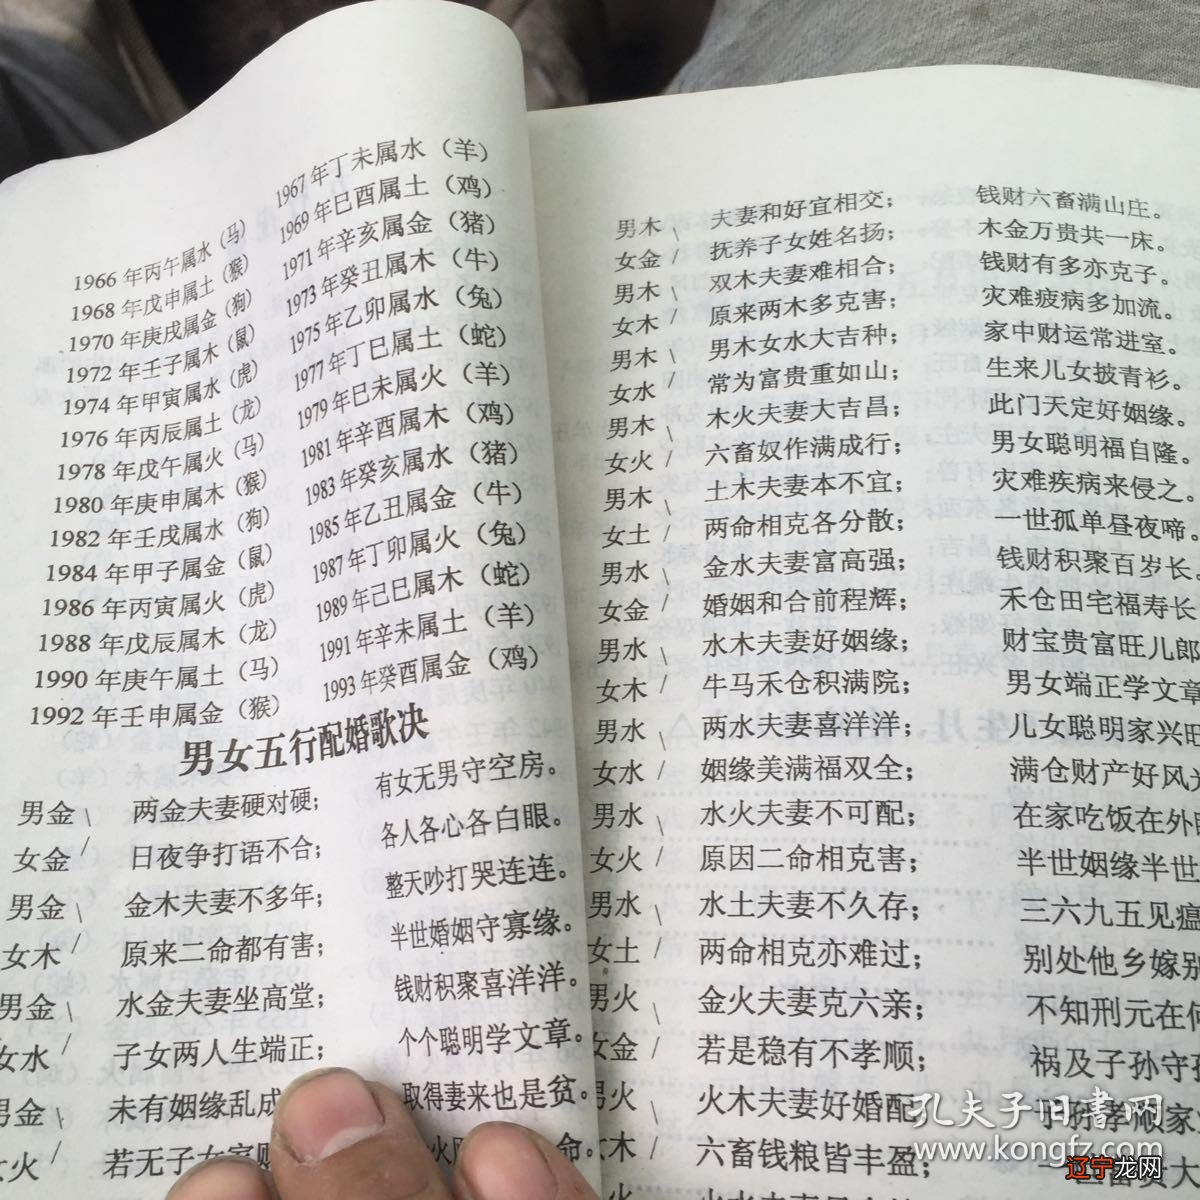 1966年丙午属水（马） 1967年丁未属水（羊）
1968年戊申属土（猴） 1969年巳酉属土（鸡）
1970年庚戌属金（狗） 1971年辛亥属金（猪）
1972年壬子属木（鼠） 1973年癸丑属木（牛）
1974年甲寅属水（虎） 1975年乙卯属水（兔）
1976年丙辰属土（龙） 1977年丁巳属土（蛇）
1978年戊午属火（马） 1979年巳未属火（羊）
1980年庚申属木（猴） 1981年辛酉属木（鸡）
1982年壬戌属水（狗） 1983年癸亥属水（猪）
1984年甲子属金（鼠） 1985年乙丑属金（牛）
1986年丙寅属火（虎） 1987年丁卯属火（兔）
1988年戊辰属木（龙） 1989年己巳属木（蛇）
1990年庚午属土（马） 1991年辛未属土（羊）
1992年壬申属金（猴） 1993年癸酉属金（鸡）
男女五行配婚歌决
男金\ 两金夫妻硬对硬； 有女无男守空房。
女金/ 日夜争打语不合； 各人各心各白眼。
男金\ 金木夫妻不多年； 整天吵打哭连连。
女木/ 原来二命都有害； 半世婚姻守寡缘。
男金\ 水金夫妻坐高堂； 钱财积聚喜洋洋。
女水/ 子女两人生端正； 个个聪明学文章。
男金\ 未有姻缘乱成 取得妻来也是贫。
女火/ 若无子女家 命。
男木\ 夫妻和好宜相交； 钱财六畜满山庄。
女金/ 抚养子女姓名扬； 木金万贵共一床。
男木\ 双木夫妻难相合； 钱财有多亦克子。
女木/ 原来两木多克害； 灾难疲病多加流。
男木\ 男木女水大吉种； 家中财运常进室。
女水/ 常为富贵重如山； 生来儿女披青衫。
男木\ 木火夫妻大吉昌； 此门天定好姻缘。
女火/ 六畜奴作满成行； 男女聪明福自隆。
男木\ 土木夫妻本不宜； 灾难疾病来侵之。
女土/ 两命相克各分散； 一世孤单昼夜啼。
男水\ 金水夫妻富高强； 钱财积聚百岁长。
女金/ 婚姻和合前程辉； 禾仓田宅福寿长
男水\ 水木夫妻好姻缘； 财宝贵富旺儿郎
女木/ 牛马禾仓积满院； 男女端正学文章
男水\ 两水夫妻喜洋洋； 儿女聪明家兴旺
女水/ 姻缘美满福双全； 满仓财产好风光
男水\ 水火夫妻不可配； 在家吃饭在外
女火/ 原因二命相克害； 半世姻缘半世
男水\ 水土夫妻不久存； 三六九五见瘟
女土/ 两命相克亦难过； 别处他乡嫁别
男火\ 金火夫妻克六亲； 不知刑元在何
女金/ 若是稳有不孝顺； 祸及子孙守
男火\ 火木夫妻好婚配 孙孝顺家
女木/ 六畜钱粮皆丰盈； 一世富贵大
孔夫子旧书网
www.kongfz.com
辽宁龙网